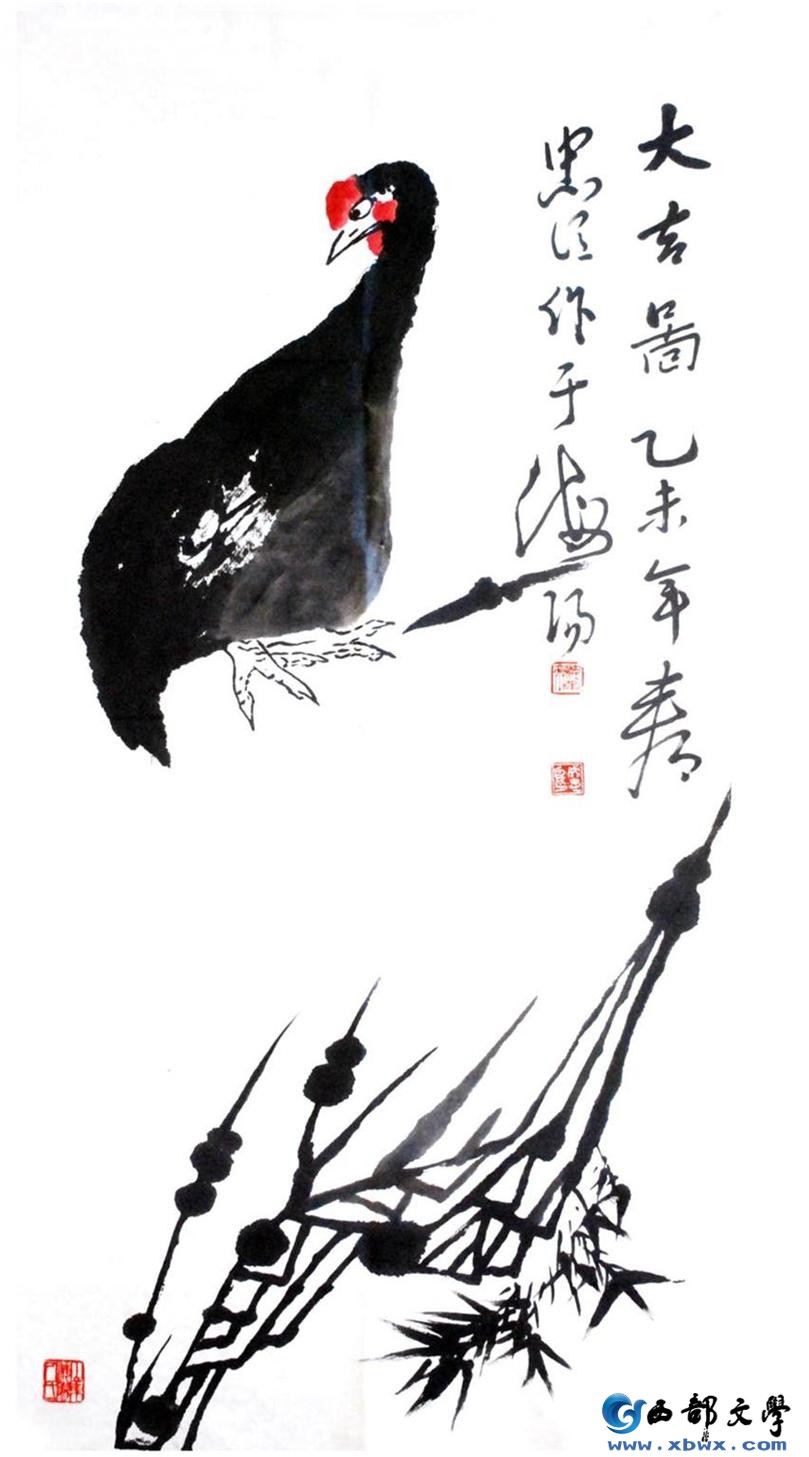 大吉啚乙未年春
思行作于海陽
西部文學
www.xbwx.com